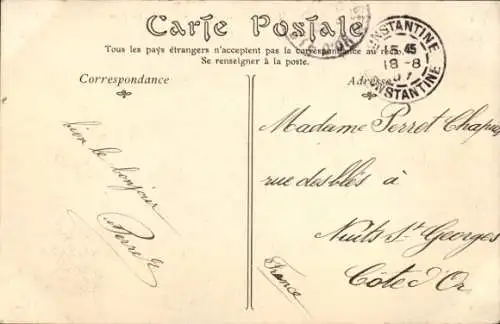 Carte Postale
Tous les pays étrangers n'acceptent pas la correspondance au recto.
Se renseigner à la poste.
Correspondance
Adresse
CONSTANTINE
15 45
18 - 8
07
CONSTANTINE
D'OR
bien le bonjour
Perret
Madame Perret Chapuis
rue des blés à
Nuits St Georges
Côte d'Or
France